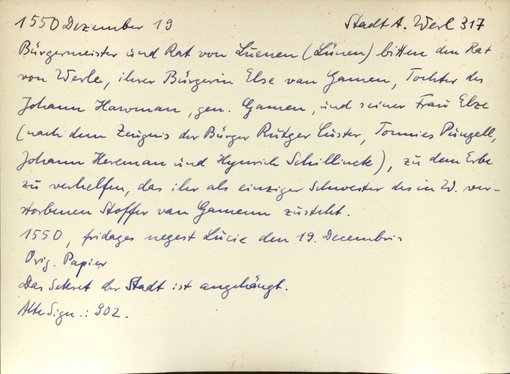 1550 Dezember 19 Stadt A. Werl 317
Bürgermeister und Rat von Luenen (Lünen) bitten den Rat
von Werle, ihrer Bürgerin Else van Gamen, Tochter des
Johann Hawman, gen. Gamen, und seiner Frau Elze
(nach dem Zeugnis der Bürger Rutger Cüster, Tonnies Püngell,
Johann Hereman und Hynrich Schillinck), zu dem Erbe
zu verhelfen, das ihr als einziger Schwester des in W. ver-
storbenen Stoffer van Gamenn zusteht.
1550, fridages negest Lucie den 19. Decembris
Orig. Papier
Das Sekret der Stadt ist angehängt.
Alte Sign.: 902.